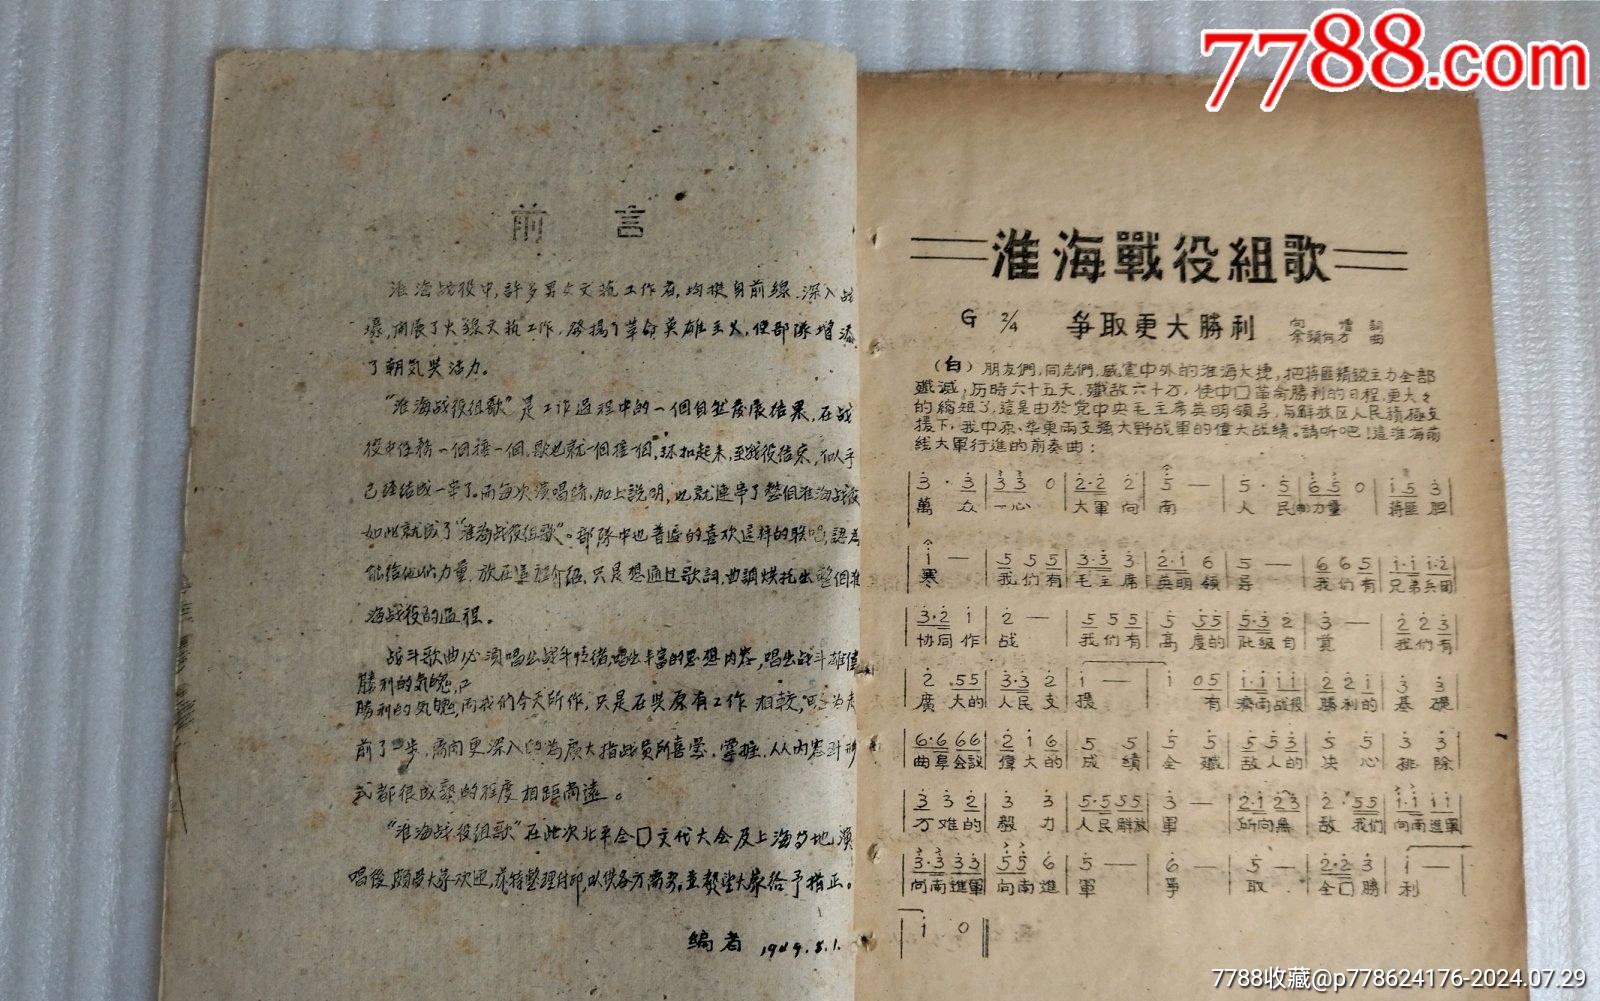 7788.com
前言
淮海战役中,許多男女文藝工作者,均挺身前線,深入战
壕,開展了火線文藝工作,發揚了革命英雄主义,使部隊增添
了朝気與活力。
“淮海战役組歌”是工作過程中的一個自然發展结果,在战
役中任務一個接一個,歌也就一個接一個,环扣起来,至战役结束,似乎
已經结成一串了。而每次演唱時,加上説明,也就連串了整個淮海战役
如此就成了“淮海战役組歌”。部隊中也普遍的喜欢這样的联唱,認為
能给他们力量,放在這裡介紹,只是想通过歌詞,曲調烘托出整個淮
海战役的過程。
战斗歌曲必須唱出战斗情緒,唱出丰富的思想内容,唱出战斗雄偉
勝利的気魄,
勝利的気魄,而我们今天所作,只是在與原有工作相較,可
前了一步,离向更深入的為廣大指战员所喜爱,掌握,从内容到形
式都很成熟的程度相距尚遠。
“淮海战役組歌”在此次北平全囗文代大会及上海等地演
唱後,頗受大家欢迎,茲特整理付印,以供各方需要,並希望大家给予指正。
編者 1949.8.1.
淮海戰役組歌
G 2/4 爭取更大勝利 詞 曲
(白)朋友們,同志們,威震中外的淮海大捷,把蔣匪精銳主力全部
殲滅,历時六十五天,殲敌六十万,使中囗革命勝利的日程,更大々
的縮短了,這是由於党中央毛主席英明領导,与解放区人民積極支
援下,我中原、华東兩支强大野战軍的偉大战绩。請听吧!這淮海前
线大軍行進的前奏曲:
3 · 3 | 3 3 0 | 2·2 2 | 5 — | 5 · 5 | 6 5 0 | i 5 3
萬 众 一心 大軍向 南 人 民的力量 蔣匪胆
i — | 5 5 5 | 3·3 3 | 2·i 6 | 5 — | 6 6 5 | i·i i·2
寒 我们有 毛主席 英明領 导 我们有 兄弟兵团
3·2 i | 2 — | 5 5 5 | 5 5 5 | 5·3 2 | 3 — | 2 2 3
协同作 战 我们有 高度的 階級自 覚 我们有
2 .5 5 | 3·3 2 | i — | i 0 5 | i·i i i | 2 2 i | 3 3
廣大的 人民支 援 有 濟南战役 勝利的 基礎
6·6 6 6 | 2 i 6 | 5 5 | 5 5 | 5 5 3 | 5 5 | 3 3
曲阜会議 偉大的 成績 全殲 敌人的 决心 排除
3 3 2 | 3 3 | 5·5 5 5 | 3 — | 2·i 2 3 | 2 · 5 5 | i·i i i
万难的 毅力 人民解放 軍 所向無 敌 我們 向南進軍
3·3 3 3 | 5 5 6 | 5 — | 6 — | 5 — | 2·2 3 | i —
向南進軍 向南進 軍 爭 取 全囗勝 利
i 0
7788收藏@p778624176-2024.07.29